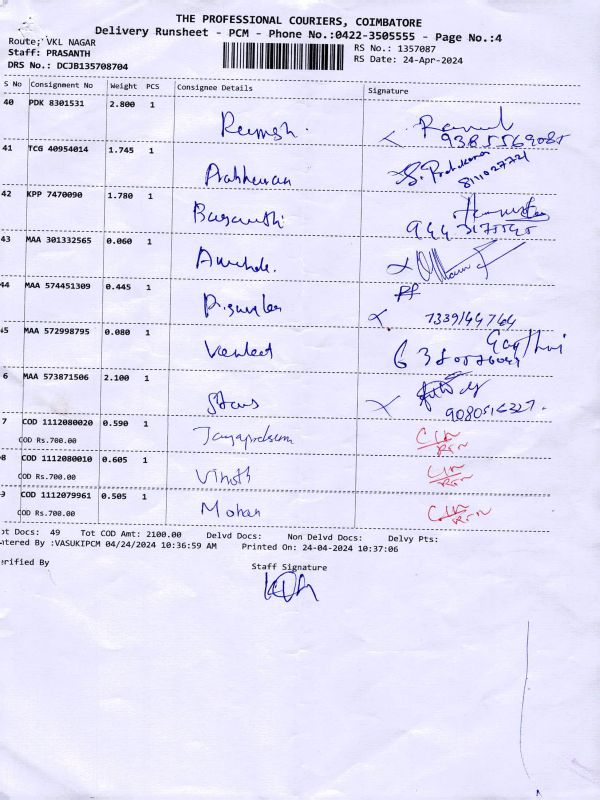 THE PROFESSIONAL COURIERS, COIMBATORE
Delivery Runsheet - PCM - Phone No.:0422-3505555 - Page No.:4
Route; VKL NAGAR
RS No.: 1357087
Staff: PRASANTH
RS Date: 24-Apr-2024
DRS No.: DCJB135708704
S No Consignment No Weight PCS Consignee Details Signature
40 PDK 8301531 2.800 1
Ramesh.
9385569085
41 TCG 40954014 1.745 1
S. Prabakaran
8111027721
42 KPP 7470090 1.780 1
Basanthi
43 MAA 301332565 0.060 1
44 MAA 574451309 0.445 1
7339144764
45 MAA 572998795 0.080 1
Venkat
6 MAA 573871506 2.100 1
9080516327.
7 COD 1112080020 0.590 1
COD Rs.700.00
Jayaprakasam
8 COD 1112080010 0.605 1
COD Rs.700.00
Vinoth
9 COD 1112079961 0.505 1
COD Rs.700.00
Mohan
ot Docs: 49 Tot COD Amt: 2100.00 Delvd Docs: Non Delvd Docs: Delvy Pts:
ntered By :VASUKIPCM 04/24/2024 10:36:59 AM Printed On: 24-04-2024 10:37:06
erified By
Staff Signature